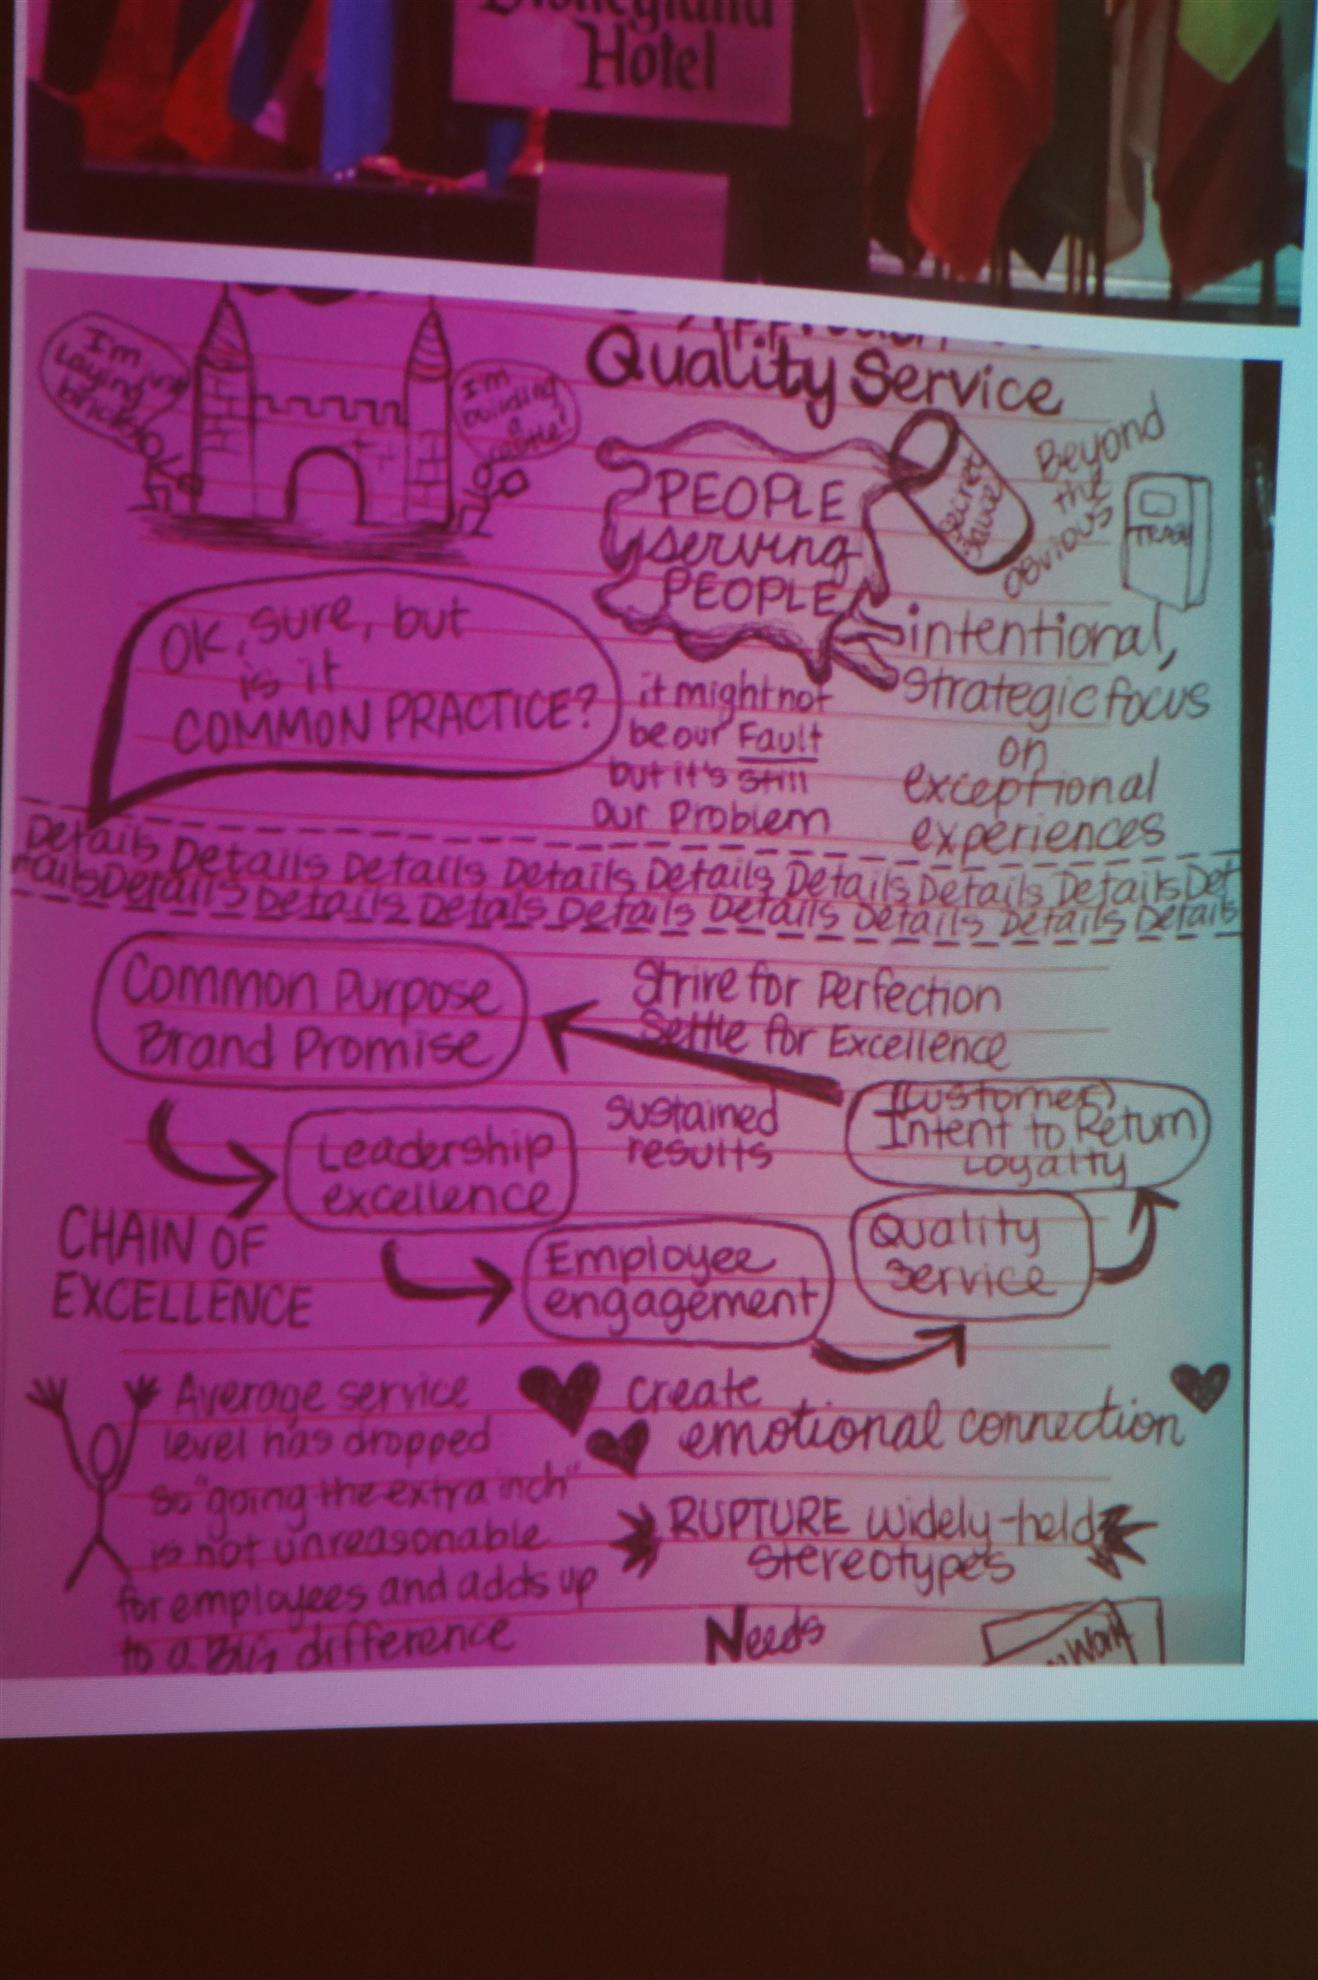 Disneyland
Hotel
Quality Service
I'm
Laying
bricks
I'm
building
a
castle!
PEOPLE
serving
PEOPLE
Secret
Sauce
Beyond
the
obvious
TRASH
OK, sure, but
is it
COMMON PRACTICE?
it might not
be our Fault
but it's still
our Problem
intentional,
strategic focus
on
exceptional
experiences
Details Details Details Details Details Details Details Details Det
ails Details Details Details Details Details Details Details Details
Common Purpose
Brand Promise
Strive for Perfection
Settle for Excellence
sustained
results
(Customer)
Intent to Return
Loyalty
Leadership
excellence
CHAIN OF
EXCELLENCE
Employee
engagement
Quality
Service
Average service
level has dropped
so "going the extra inch"
is not unreasonable
for employees and adds up
to a BIG difference
create
emotional connection
RUPTURE widely-held
stereotypes
Needs
Work